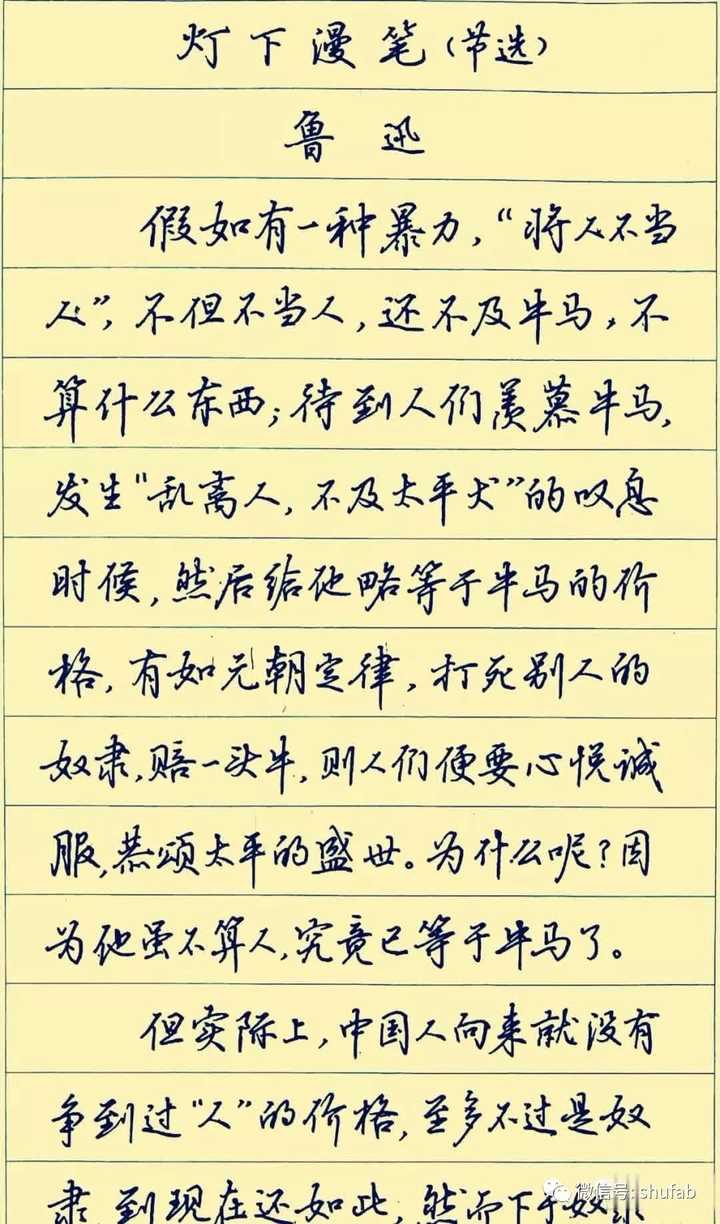 灯下漫笔(节选)
鲁迅
假如有一种暴力，“将人不当
人”，不但不当人，还不及牛马，不
算什么东西；待到人们羡慕牛马，
发生“乱离人，不及太平犬”的叹息
时候，然后给他略等于牛马的价
格，有如元朝定律，打死别人的
奴隶，赔一头牛，则人们便要心悦诚
服，恭颂太平的盛世。为什么呢？因
为他虽不算人，究竟已等于牛马了。
但实际上，中国人向来就没有
争到过“人”的价格，至多不过是奴
隶，到现在还如此，然而下于奴隶
微信号: shufab